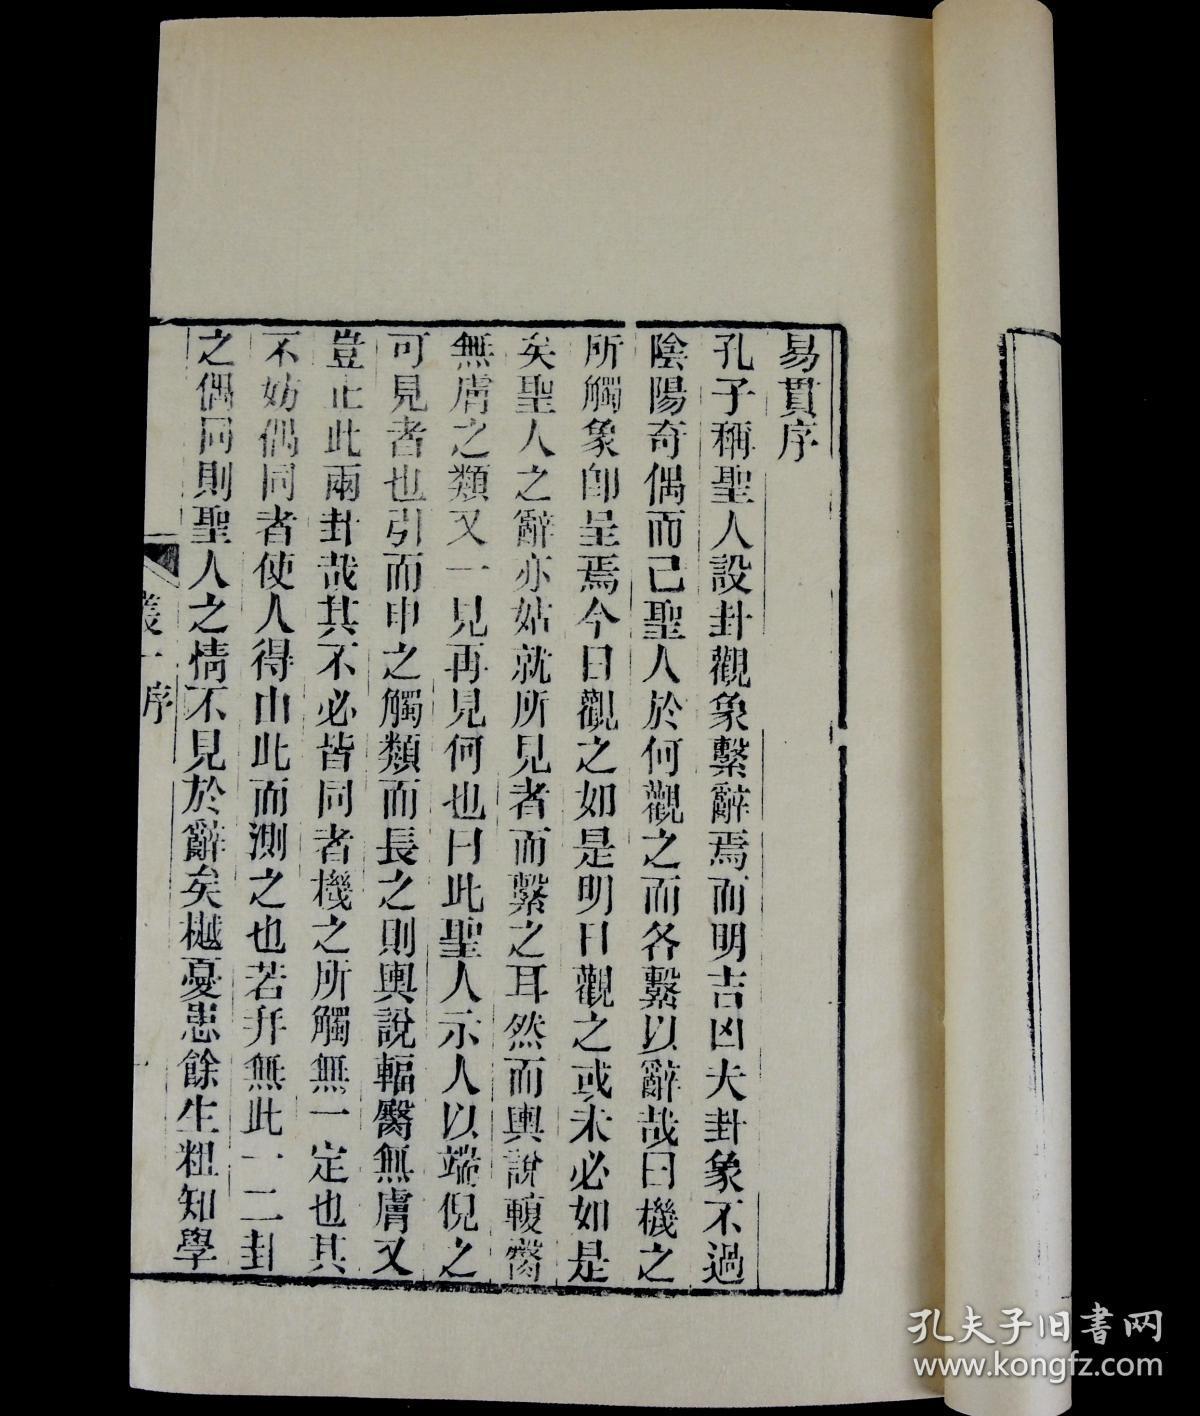 易貫序
孔子稱聖人設卦觀象繫辭焉而明吉凶夫卦象不過
陰陽奇偶而已聖人於何觀之而各繫以辭哉曰機之
所觸象卽呈焉今日觀之如是明日觀之或未必如是
矣聖人之辭亦姑就所見者而繫之耳然而輿說輹臀
無膚之類又一見再見何也曰此聖人示人以端倪之
可見者也引而申之觸類而長之則輿說輻臀無膚又
豈止此兩卦哉其不必皆同者機之所觸無一定也其
不妨偶同者使人得由此而測之也若幷無此一二卦
之偶同則聖人之情不見於辭矣樾憂患餘生粗知學
叢一序
孔夫子旧书网
www.kongfz.com